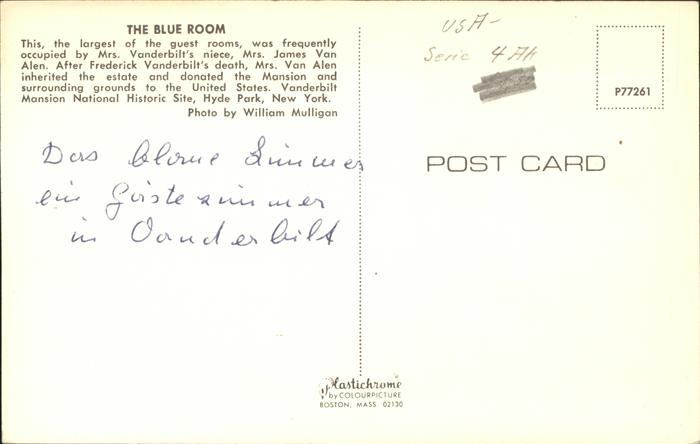 THE BLUE ROOM
This, the largest of the guest rooms, was frequently
occupied by Mrs. Vanderbilt's niece, Mrs. James Van
Alen. After Frederick Vanderbilt's death, Mrs. Van Alen
inherited the estate and donated the Mansion and
surrounding grounds to the United States. Vanderbilt
Mansion National Historic Site, Hyde Park, New York.
Photo by William Mulligan
Das blaue Zimmer
ein Gästezimmer
in Vanderbilt
USA-
Serie 4 Ah
P77261
POST CARD
Plastichrome
by COLOURPICTURE
BOSTON, MASS. 02130